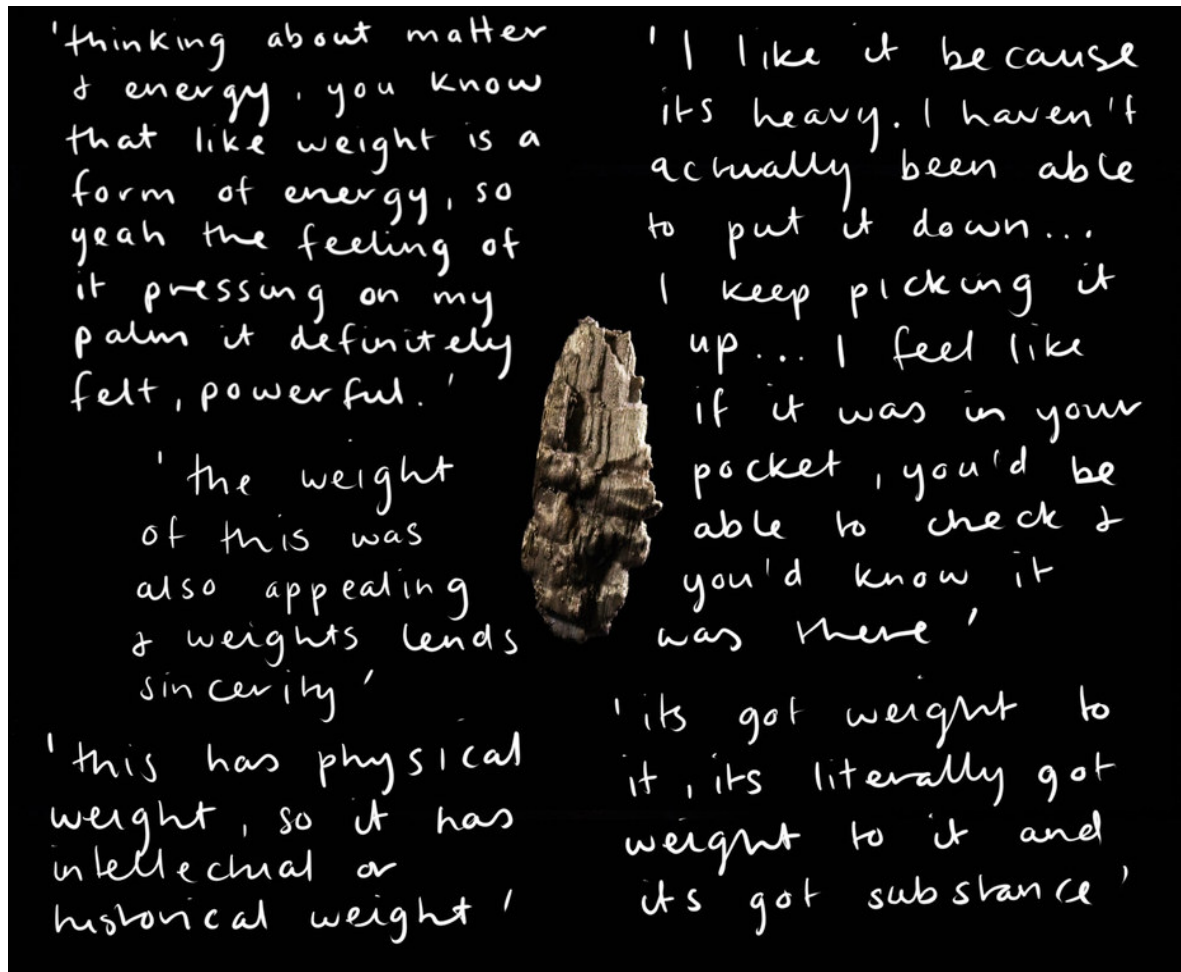 'thinking about matter
& energy, you know
that like weight is a
form of energy, so
yeah the feeling of
it pressing on my
palm it definitely
felt, powerful.'
'the weight
of this was
also appealing
& weights lends
sincerity'
'this has physical
weight, so it has
intellectual or
historical weight'
'I like it because
its heavy. I haven't
actually been able
to put it down...
I keep picking it
up... I feel like
if it was in your
pocket, you'd be
able to check &
you'd know it
was there'
'its got weight to
it, its literally got
weight to it and
its got substance'